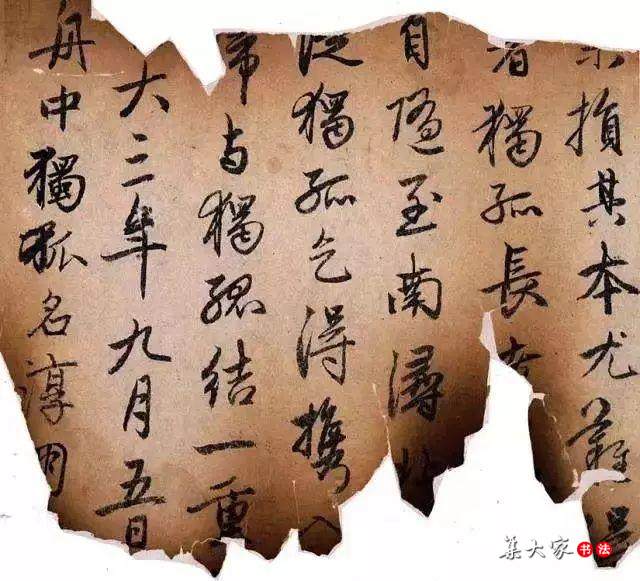 未損其本尤難得
者獨孤長
自隨至南潯
從獨孤乞得攜入
歸與獨孤結一重
大三年九月五日
舟中獨孤名淳朋
集大家书法